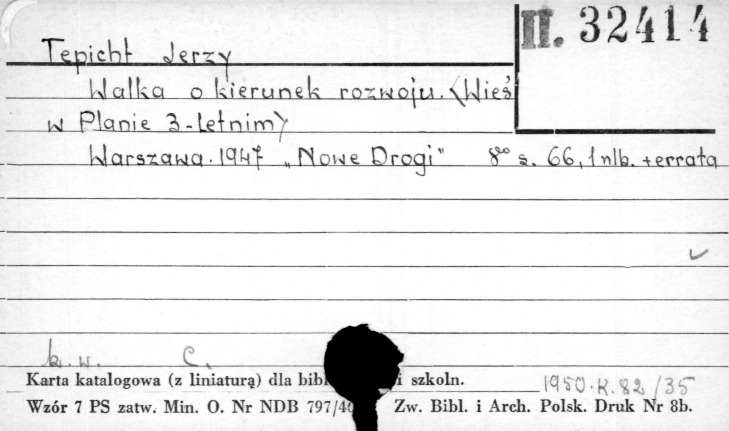 II. 32414
Tepicht Jerzy
Walka o kierunek rozwoju. (Wieś
w Planie 3-letnim)
Warszawa. 1947 „Nowe Drogi" 8º s. 66, 1 nlb. + errata
k.w. C.
Karta katalogowa (z liniaturą) dla i szkoln.
1950.K.82/35
Wzór 7 PS zatw. Min. O. Nr NDB Zw. Bibl. i Arch. Polsk. Druk Nr 8b.